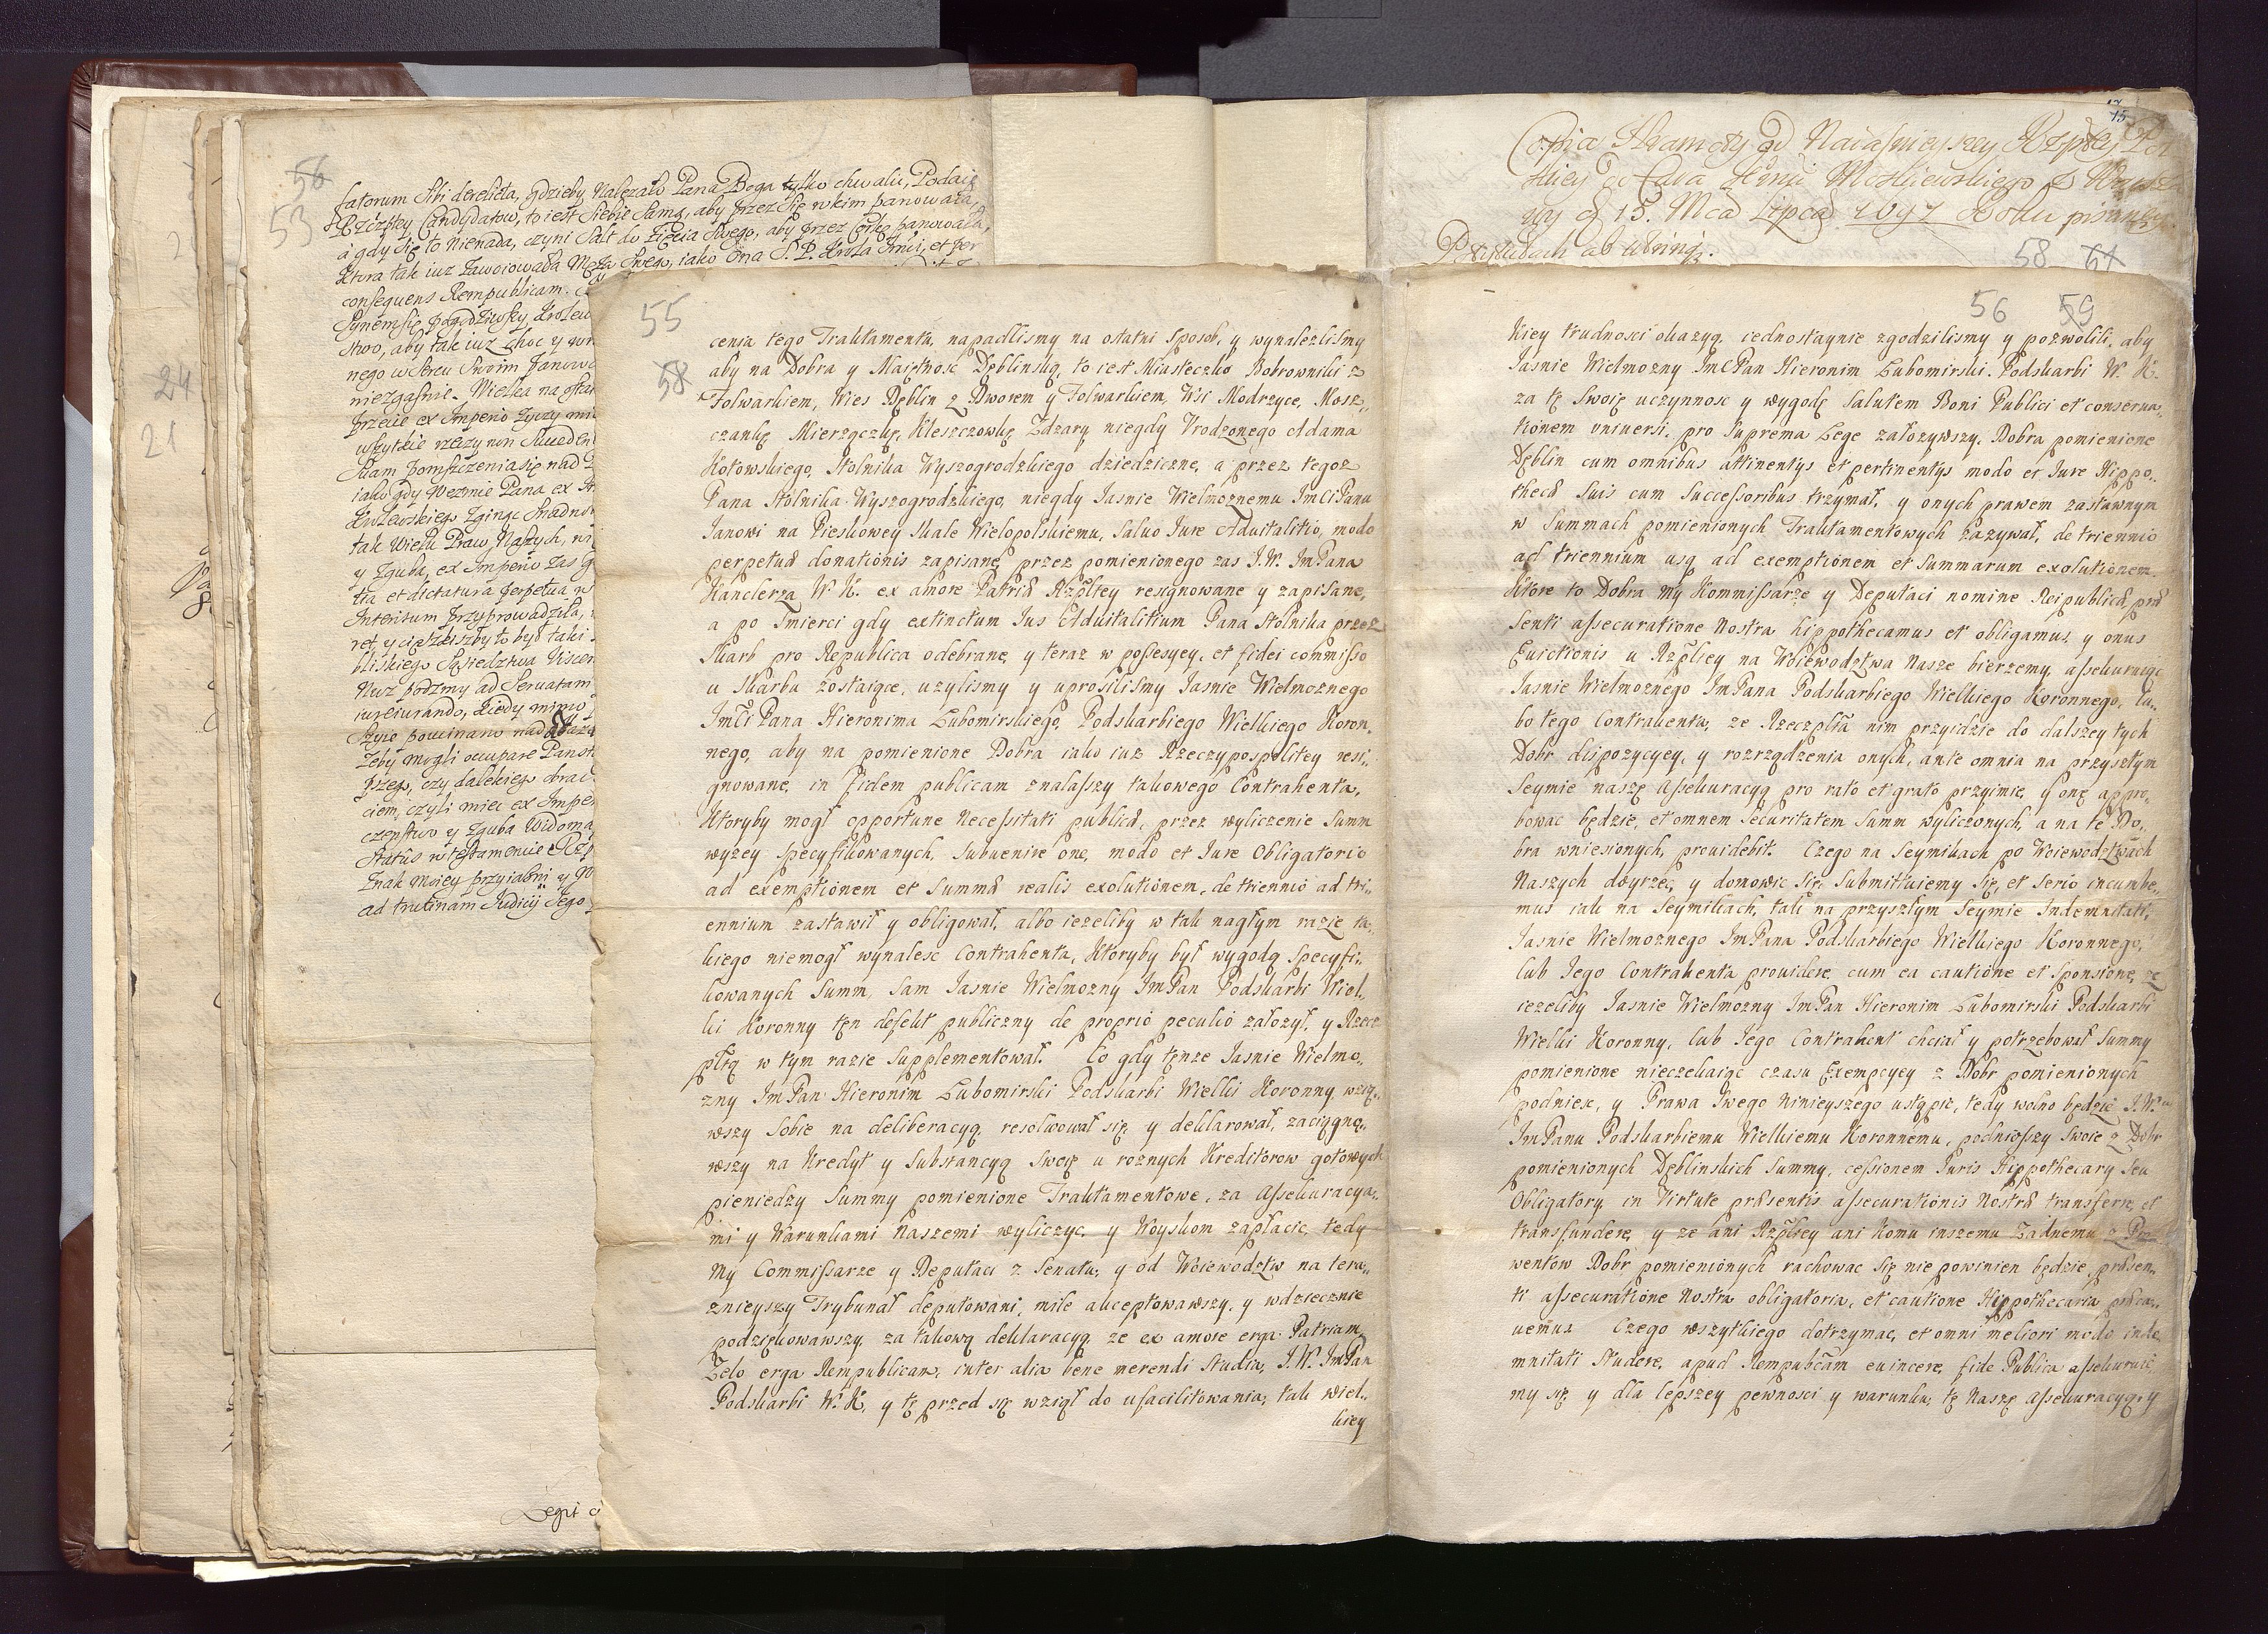 56
53
fatorum Sibi derelicta, gdzieby Nalezało Pana Boga tylko chwalic, Podaie
Rzczptey Candydatow, to iest Siebie Samą, aby przez Się w kim panowała,
a gdy Się to nienada, czyni Salt do Zięcia Swego, aby przez Corkę panowała,
Ktora tak iuz Zawoiowała Męża Swego, iako Ona S. P. Krola Jmci, et per
consequens Rempublicam.
Synem się pogodziwszy Krolew
stwo, aby tak iuz choc y w
nego w Sercu Swoim panow
niezgasnie. Wielka na ostat
przecie ex Imperio Zyczy mi
wszytkie rzeczy non Succeden
Stam pomszczenia się nad
iako gdy wezmie Pana ex
Krolewskiego Zginąc Snadno
tak Wielu Praw Naszych,
y Zguba, ex Imperio zas
tia et dictatura perpetua
Interitum przyprowadziła,
ret, y cięzkiszby to był taki
bliskiego Sąsiedztwa
Nuz podzmy ad Servatam
iureiurando, Kiedy mimo
Szyie poucinano nad
Zeby mogli occupare Panst
pszego, czy dalekiego
ciem, czyli miec ex Imper
czenstwo y Zguba Widoma,
Status w testamencie Rzp
Znak Moiey przyiazni y
ad trutinam Judicij Jego
Legit
24
21
15
Copia Hramoty od Naiasnieyszey Rzptey Pol
skiey do Cara Jmci Moskiewskiego z Warsza
wy d 15. Mca Lipca 1697 Roku pisaney.
58
55
58
cenia tego Traktamentu, napadlismy na ostatni sposob, y wynalezlismy
aby na Dobra y Maiętnosc Dęblinską, to iest Miasteczko Bobrowniki z
Folwarkiem, Wies Dęblin z Dworem y Folwarkiem, Wsi Modrzyce, Mosz„
czankę Mierzączkę, Kleszczowkę Zdzary niegdy Vrodzonego Adama
Kotowskiego, Stolnika Wyszogrodzkiego dziedziczne, a przez tegoz
Pana Stolnika Wyszogrodzkiego, niegdy Jasnie Wielmoznemu ImCi Panu
Janowi na Pieskowey Skale Wielopolskiemu, Saluo Jure Aduitalitio, modo
perpetuæ donationis zapisane, przez pomienionego zas J.W. ImPana
Kanclerza W K. ex amore Patriæ Rzpltey resignowane y zapisane,
a po Smierci gdy extinctum Jus Aduitalitium Pana Stolnika przez
Skarb pro Republica odebrane, y teraz w possesyey, et fidei commisso
u Skarbu zostaiące, uzylismy y uprosilismy Jasnie Wielmoznego
ImCi Pana Hieronima Lubomirskiego, Podskarbiego Wielkiego Koron„
nego, aby na pomienione Dobra iako iuz Rzeczypospolitey resi„
gnowane, in fidem publicam znalaszy takowego Contrahenta,
Ktoryby mogł opportune Necessitati publicæ, przez wyliczenie Summ
wyzey specyfikowanych, Subuenire one, modo et Jure Obligatorio
ad exemptionem et Summæ realis exolutionem, de triennio ad tri„
ennium zastawił y obligował, albo iezeliby w tak nagłym razie ta„
kiego niemogł wynalesc Contrahenta, Ktoryby był wygodą Specyfi„
kowanych Summ, Sam Jasnie Wielmozny ImPan Podskarbi Wiel„
ki Koronny ten defekt publiczny de proprio peculio załozył, y Rzecz
pltą w tym razie Supplementował. Co gdy tenze Jasnie Wielmo„
zny ImPan Hieronim Lubomirski Podskarbi Wielki Koronny wziąw„
wszy Sobie na deliberacyą resolwował się y deklarował, zaciągną„
wszy na Kredyt y Substancyą Swoię u roznych Kreditorow gotowych
pieniedzy Summy pomienione Traktamentowe, za Assekuracya„
mi y Warunkami Naszemi wyliczyc, y Woyskom zapłacic, tedy
My Commissarze y Deputaci z Senatu, y od Woiewodztw na tera„
znieyszy Trybunał deputowani, mile akceptowawszy, y wdziecznie
podziękowawszy, za takową deklaracyą ze ex amore erga Patriam
Zelo erga Rempublicam, inter alia bene merendi studia, J.W. ImPan
Podskarbi W. K, y tę przed się wziął do ufacilitowania, tak wiel„
kiey
56 59
kiey trudnosci okazyą, iednostaynie zgodzilismy y pozwolili, aby
Jasnie Wielmozny ImCPan Hieronim Lubomirski Podskarbi W. K.
za tę Swoię uczynnosc y wygodę Salutem Boni Publici et conserua„
tionem vniuersi, pro Suprema Lege załozywszy, Dobra pomienione
Dęblin cum omnibus attinentys et pertinentys modo et Jure Hippo„
thecæ Suis cum Successoribus trzymał, y onych prawem zastawnym
w Summach pomienionych Traktamentowych Zazywał, de triennio
ad triennium usq ad exemptionem et Summarum exolutionem.
Ktore to Dobra My Kommissarze y Deputaci nomine Reipublicæ, præ
senti assecuratione Nostra hippothecamus et obligamus, y onus
Euictionis u Rzpltey na Woiewodztwa Nasze bierzemy, assekuruiąc
Jasnie Wielmoznego ImPana Podskarbiego Wielkiego Koronnego, lu„
bo tego Contrahenta, ze Rzeczplta nim przyidzie do dalszey tych
Dobr dispozycyey, y rozrządzenia onych, ante omnia na przyszłym
Seymie naszę Assekuracyą pro rato et grato przyimie, y onę appro„
bowac będzie, et omnem Securitatem Summ wyliczonych, a na te Do„
bra wniesionych, prouidebit. Czego na Seymikach po Woiewodztwach
Naszych doyrzec, y domowic się, Submittuiemy się, et serio incumbe„
mus iak na Seymikach, tak na przyszłym Seymie Indemnitati,
Jasnie Wielmoznego ImPana Podskarbiego Wielkiego Koronnego,
lub Jego Contrahenta prouidere, cum ea cautione et Sponsione, ze
iezeliby Jasnie Wielmozny ImPan Hieronim Lubomirski Podskarbi
Wielki Koronny, lub Jego Contrahent chciał y potrzebował Summy
pomienione nieczekaiąc czasu Exempcyey z Dobr pomienionych
podniesc, y Prawa Swego Ninieyszego ustąpic, tedy wolno będzie J.W.
ImPanu Podskarbiemu Wielkiemu Koronnemu, podniosszy Swoie z Dobr
pomienionych Dęblinskich Summy, cessionem Juris Hippothecary Seu
Obligatory, in Virtute præsentis assecurationis Nostræ transferre, et
transfundere, y ze ani Rzpltey ani Komu inszemu Zadnemu z Pro
wentow Dobr pomienionych rachowac się nie powinien będzie, præsen„
ti assecuratione Nostra obligatoria, et cautione Hippothecaria præca„
uemus Czego wszytkiego dotrzymac, et omni meliori modo inde
mnitati Studere, apud Rempubcam euincere, fide Publica assekuruie
my się y dla lepszey pewnosci y warunku, tę Naszę Assekuracyą, y